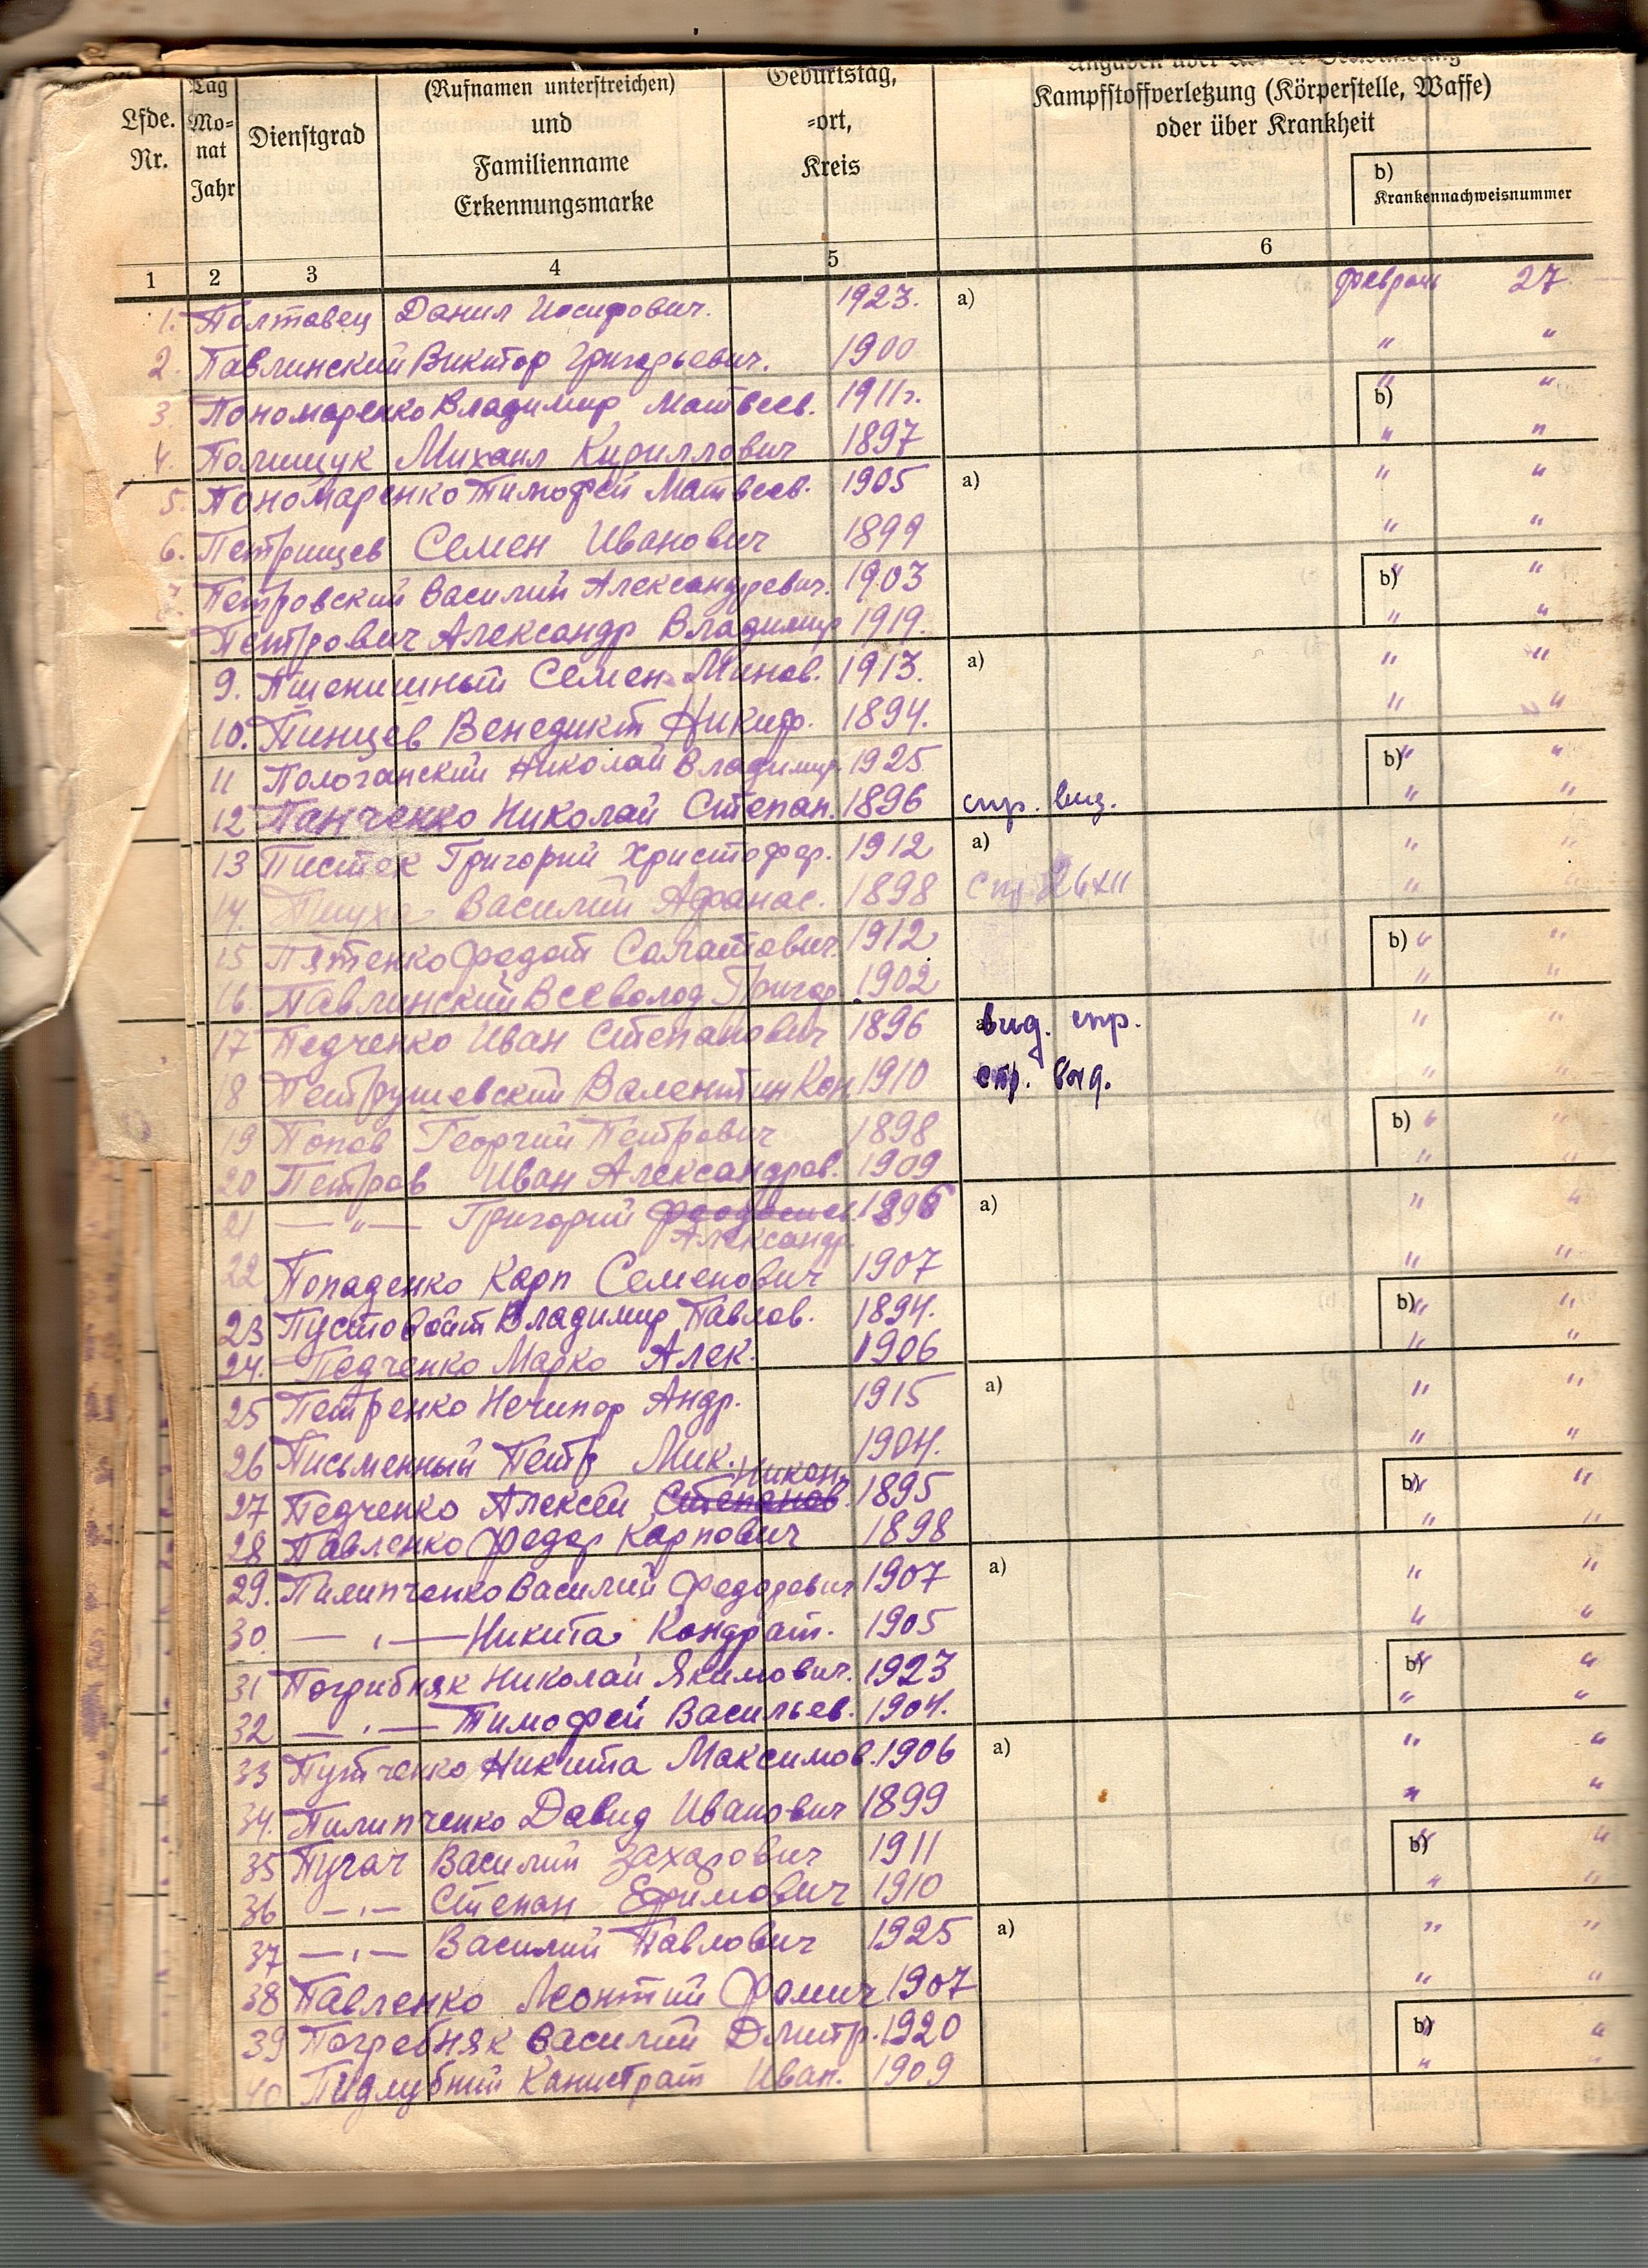 Lfde.
Nr.
Tag
Mo=
nat
Jahr
Dienstgrad
(Rufnamen unterstreichen)
und
Familienname
Erkennungsmarke
Geburtstag,
=ort,
Kreis
Kampfstoffverletzung (Körperstelle, Waffe)
oder über Krankheit
b)
Krankennachweisnummer
1 2 3 4 5 6
1. Полтавец Данил Иосифович. 1923. a) февраль 27.
2. Павлинский Виктор Григорьевич. 1900 " "
3. Пономаренко Владимир Матвеев. 1911г. b) " "
4. Полищук Михаил Кириллович 1897 " "
5. Пономаренко Тимофей Матвеев. 1905 a) " "
6. Петрищев Семен Иванович 1899 " "
7. Петровский Василий Александрович. 1903 b) " "
Петрович Александр Владимир 1919. " "
9. Пшенишный Семен Минов. 1913. a) " "
10. Пинцев Венедикт Никиф. 1894. " "
11 Пологанский Николай Владимир. 1925 b) " "
12 Панченко Николай Степан. 1896 спр. вид. " "
13 Пистек Григорий Христофор. 1912 a) " "
14. Василий Афанас. 1898 26 XII " "
15 Пятенко Федот Саватович. 1912 b) " "
16. Павлинский Всеволод Григор. 1902 " "
17 Педченко Иван Степанович 1896 вид. спр. " "
18 Петрушевский Валентин Кон 1910 спр. вид. " "
19 Попов Георгий Петрович 1898 b) " "
20 Петров Иван Александров. 1909 " "
21 — " — Григорий 1896 a) " "
Александр.
22 Попаденко Карп Семенович 1907 " "
23 Пустовойт Владимир Павлов. 1894. b) " "
24. Педченко Марко Алек. 1906 " "
25 Петренко Нечипор Андр. 1915 a) " "
26 Письменный Петр Мик. 1904. " "
Никон.
27 Педченко Алексей Степанов. 1895 b) " "
28 Павленко Федор Карпович 1898 " "
29. Пилипченко Василий Федорович 1907 a) " "
30. — " — Никита Кондрат. 1905 " "
31 Погрибняк Николай Якимович. 1923 b) " "
32 — " — Тимофей Васильев. 1904. " "
33 Путченко Никита Максимов. 1906 a) " "
34. Пилипченко Давид Иванович 1899 " "
35 Пугач Василий Захарович 1911 b) " "
36 — " — Степан Ефимович 1910 " "
37 — " — Василий Павлович 1925 a) " "
38 Павленко Леонтий Фомич 1907 " "
39 Погребняк Василий Дмитр. 1920 b) " "
40 Пидлубний Канистрат Иван. 1909 " "